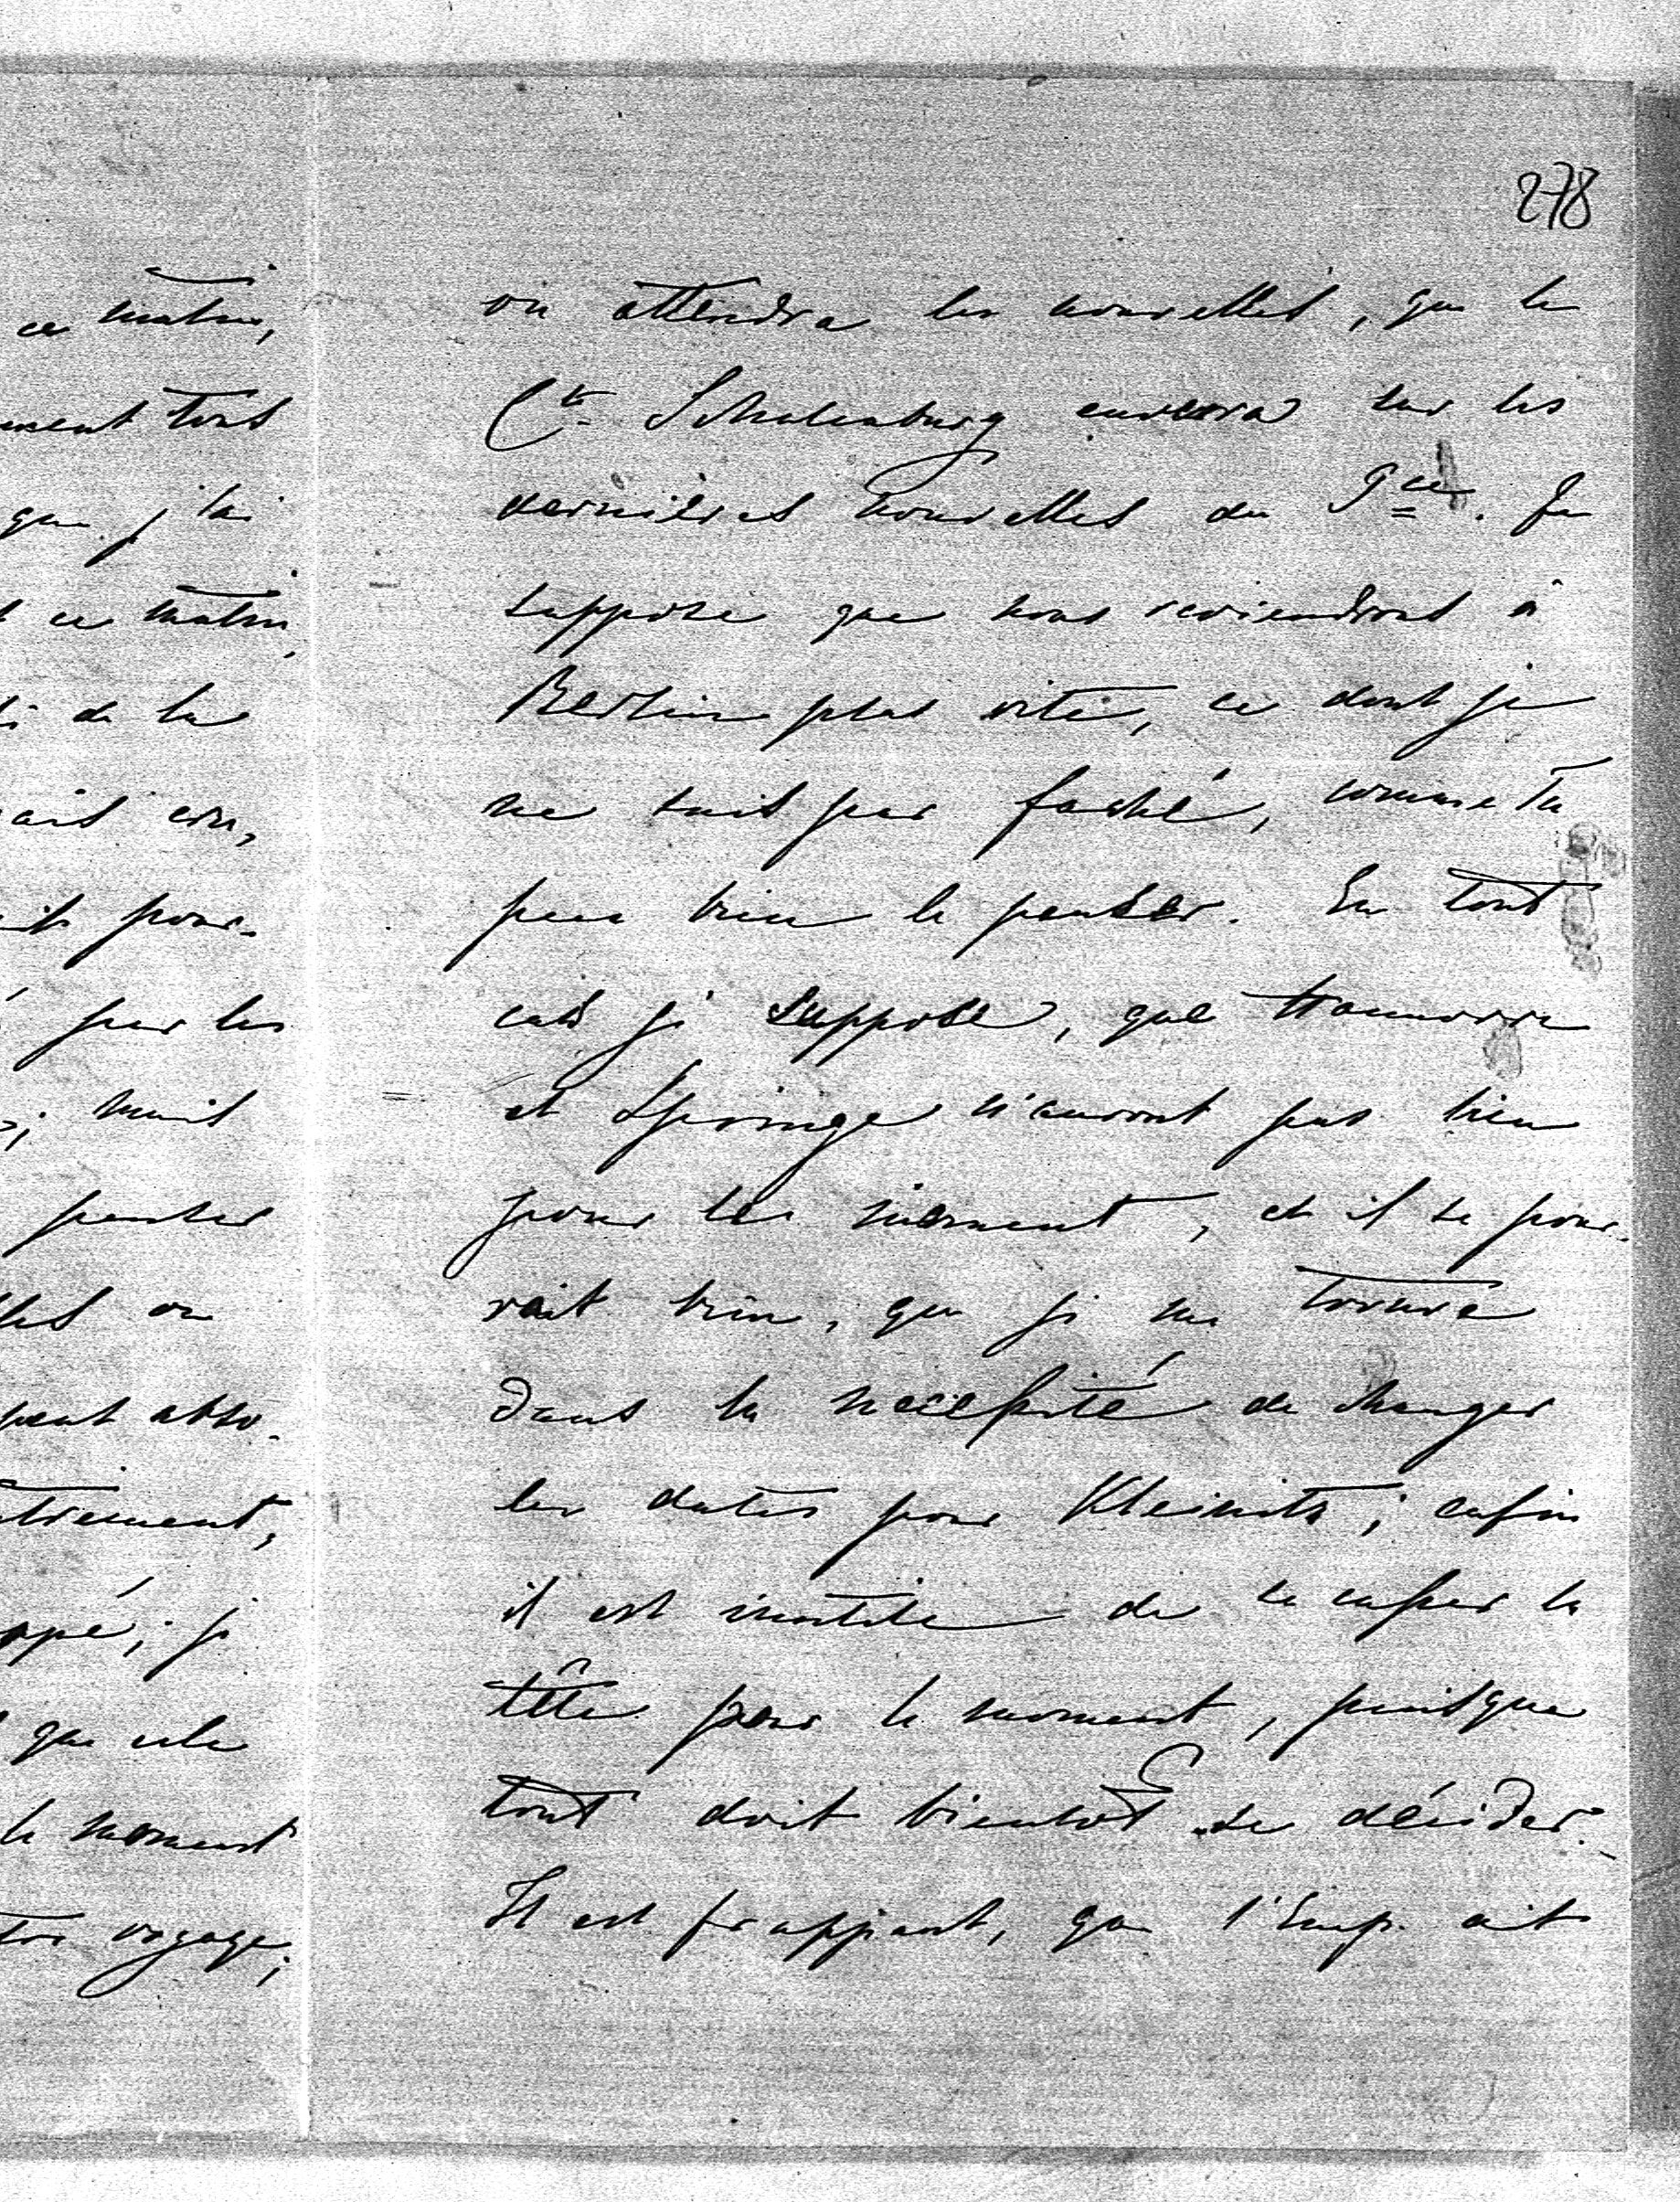 278
ce matin,
ment tout
que j'ai
ce matin,
de la
pour-
par les
; mais
penser
on
peut abso-
; je
que cela
le moment
voyage;
on attendra les nouvelles, que le
Cte Schulenburg enverra sur les
dernières nouvelles du Pce. Je
suppose que nous reviendrons à
Berlin plus vite, ce dont je
ne suis pas faché, comme Tu
peux bien le penser. En tout
cas je suppose, que Hannovre
et Springe n'auront pas lieu
pour le moment, et il se pour-
rait bien, que je me trouve
dans la nécessité de changer
les dates pour Kleinitz; enfin
il est inutile de se casser la
tête pour le moment, puisque
tout doit bientôt se décider.-
Il est frappant, que l'Emp. ait